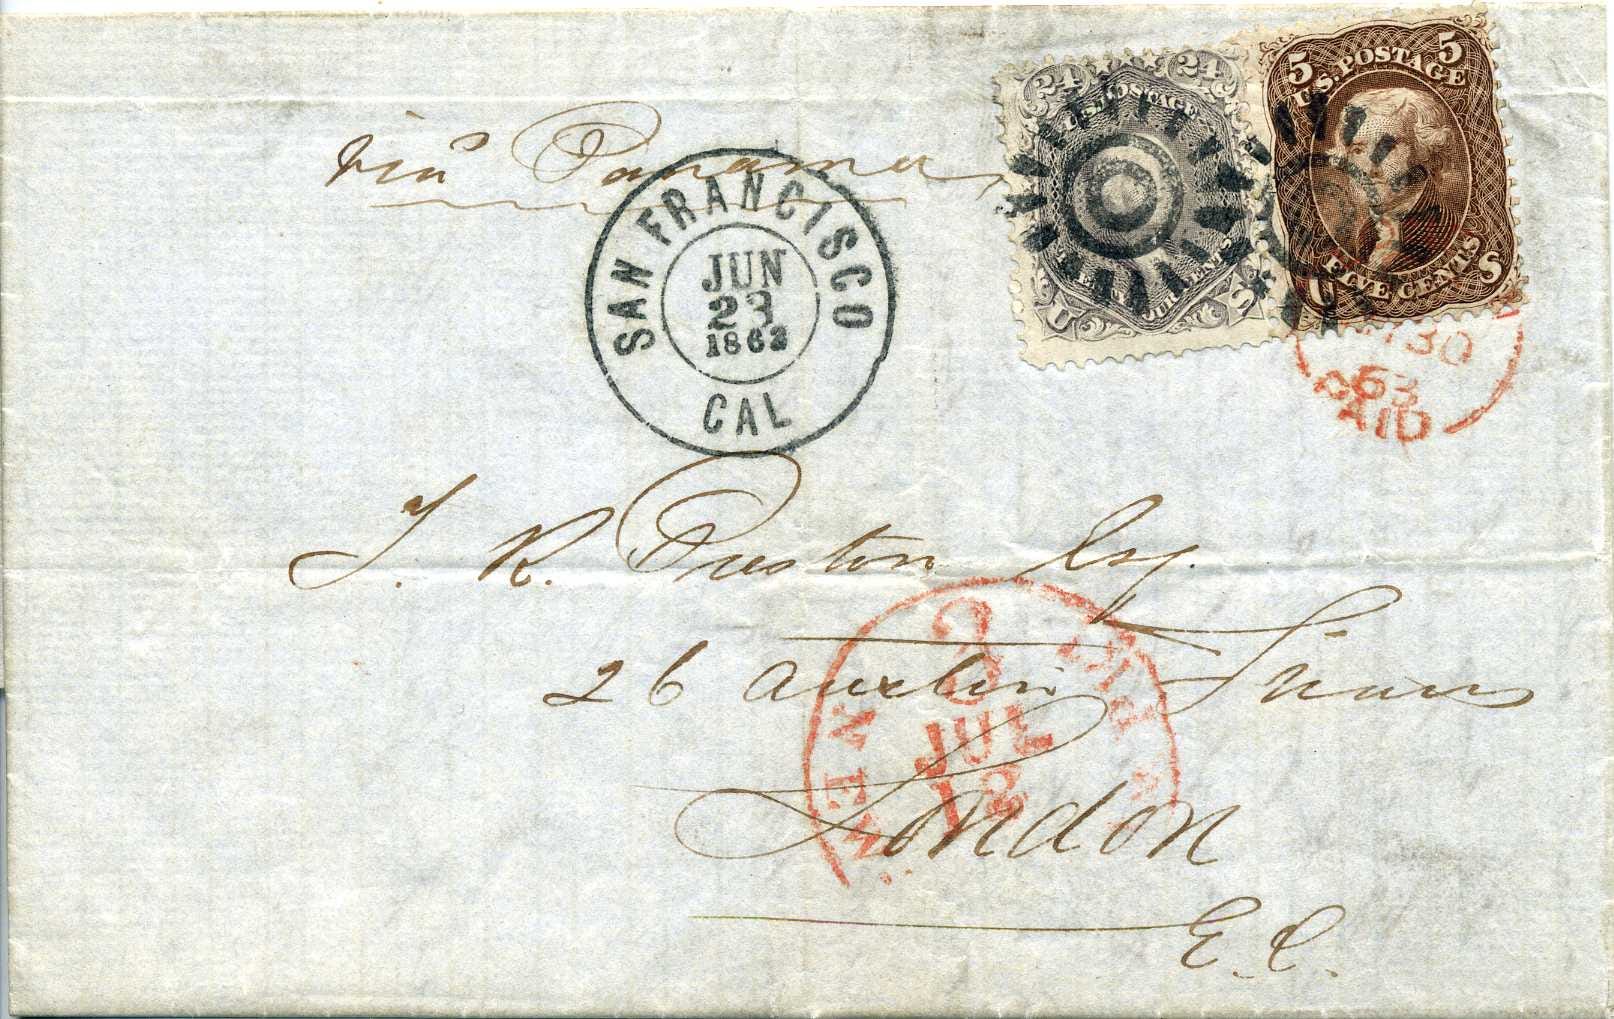 24 24
U.S. POSTAGE
U S
5 5
U.S. POSTAGE
FIVE CENTS
U S
via Panama
SAN FRANCISCO
JUN
23
1863
CAL
30
63
PAID
J. R. Preston Esq.
26 Austin Friars
London
E. C.
NEW
3
JUL
18